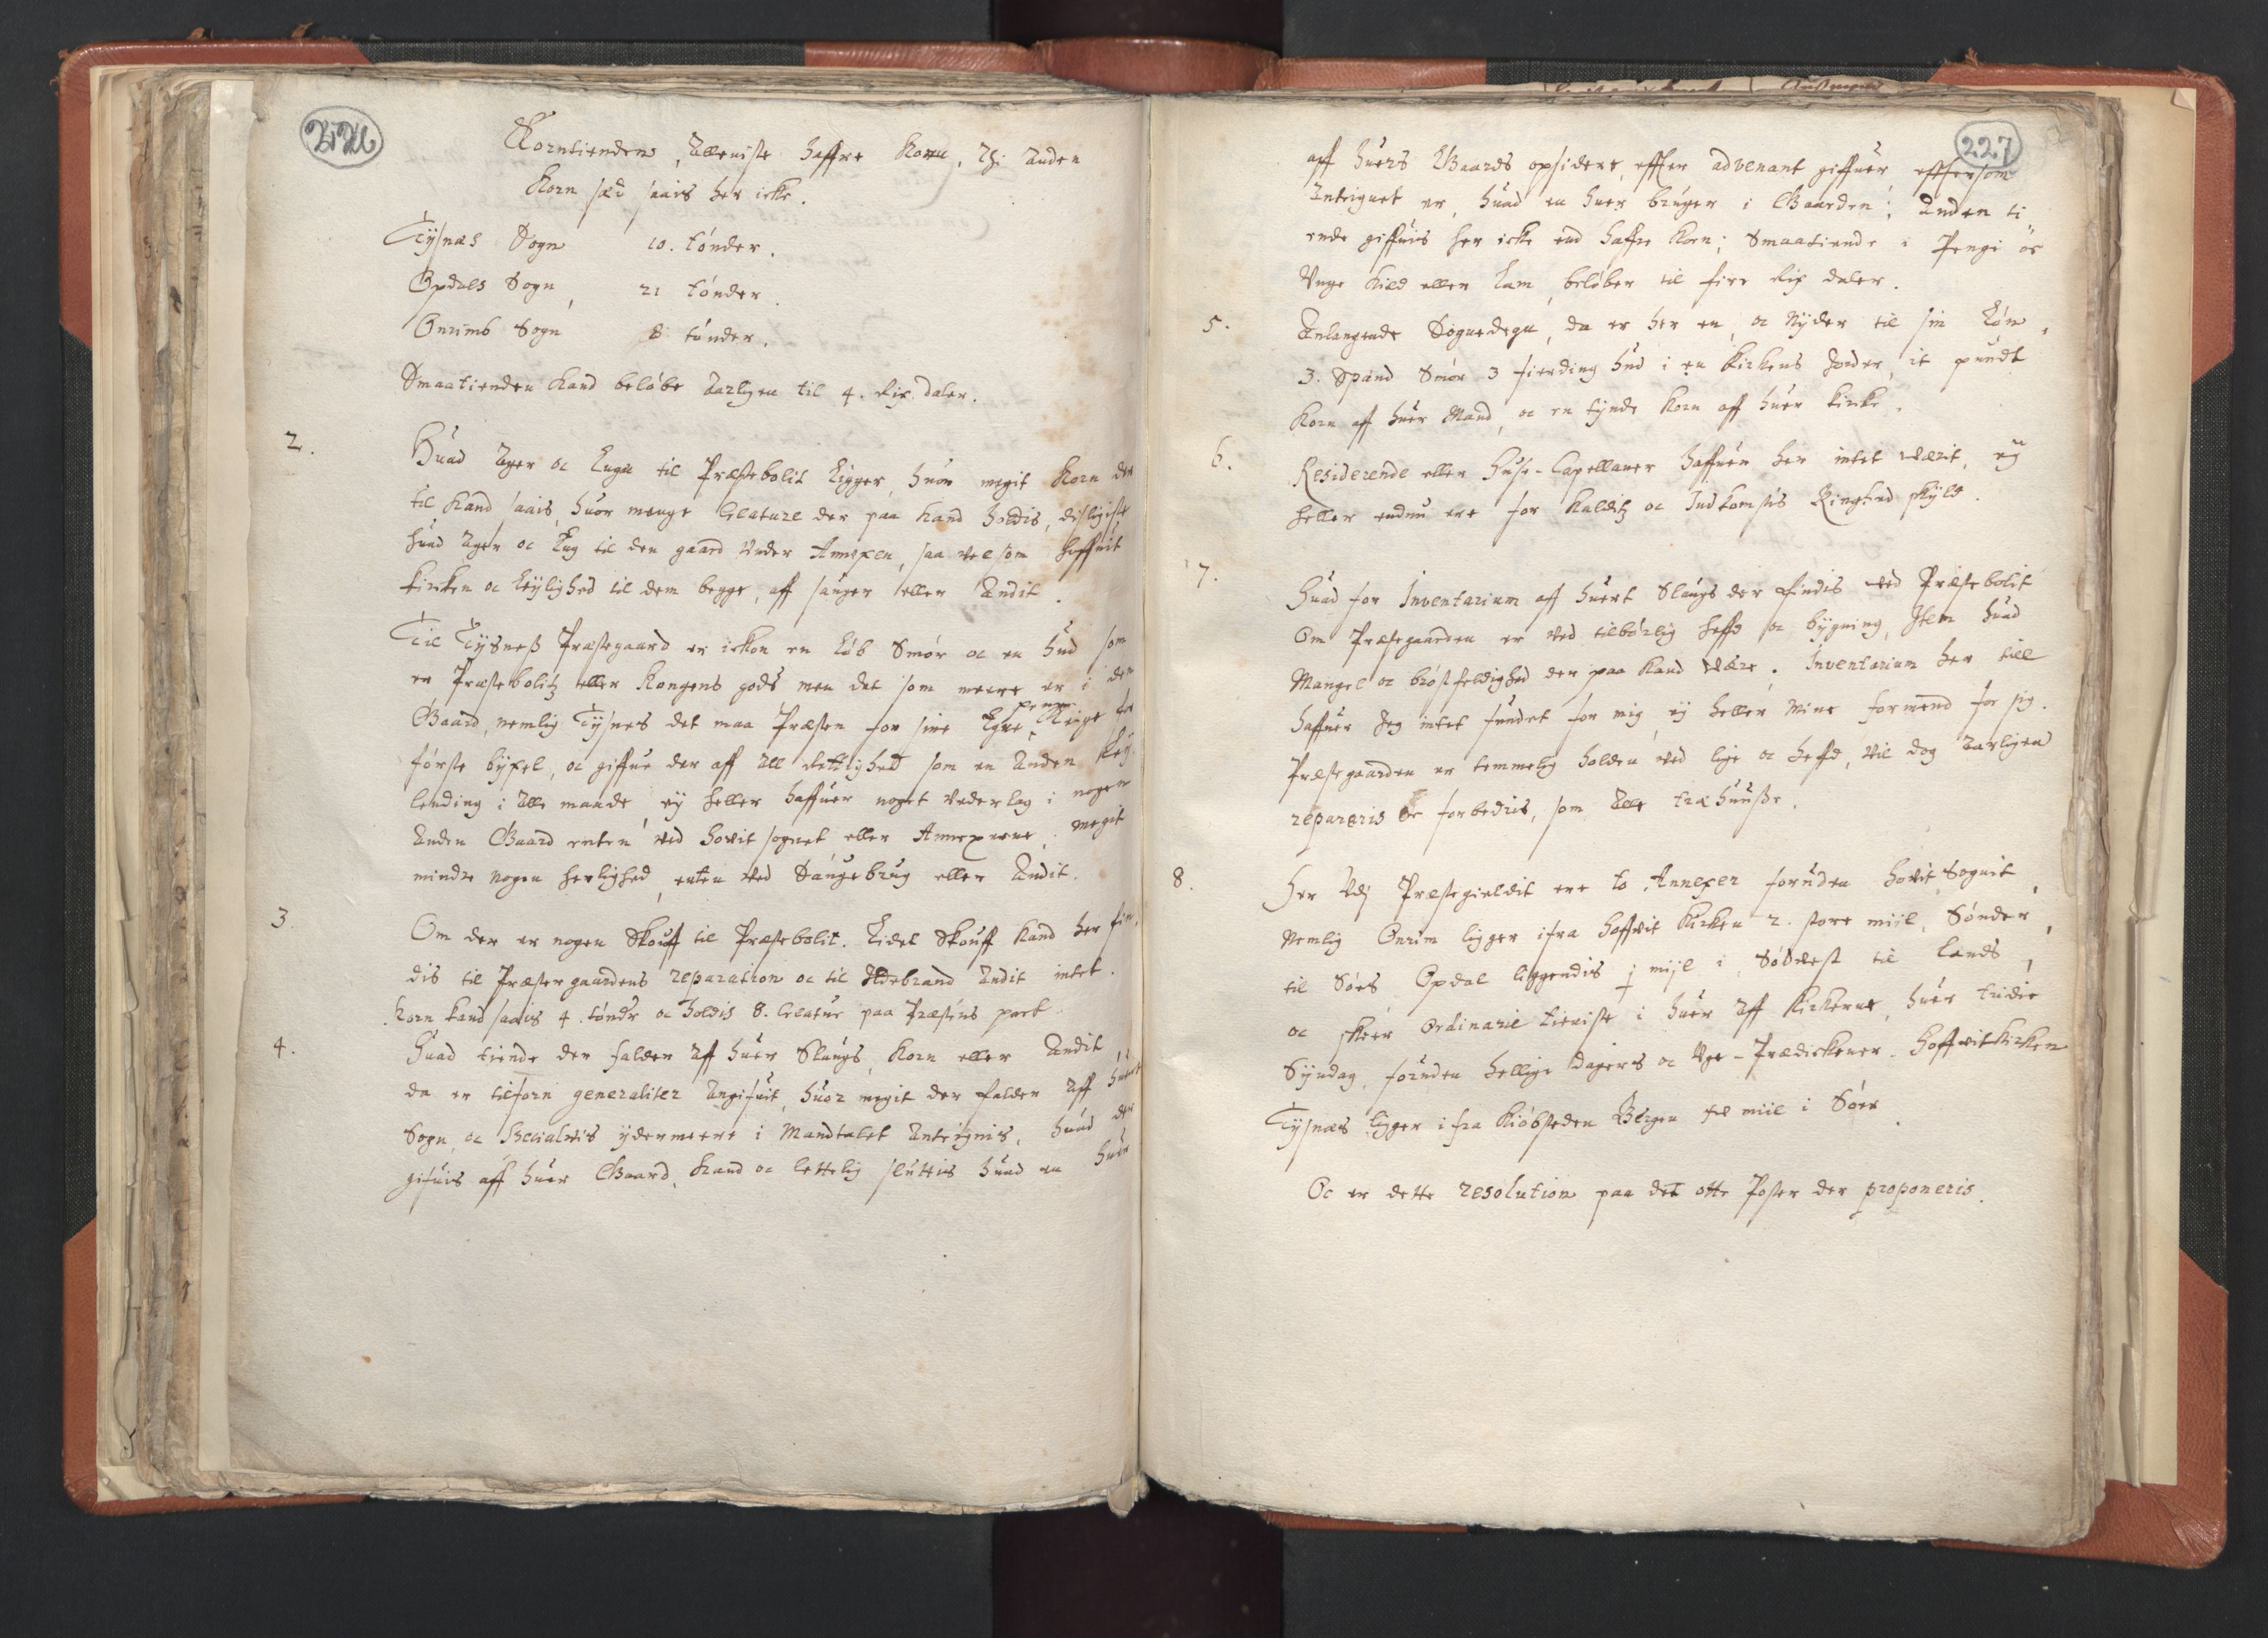 226
Korntienden, Alleniste haffre Korn, Thi anden
Korn sæd saais her icke.
Tÿsnæs Sogn 10. tónder.
Opdals Sogn, 21 tónder.
Onrimb Sogn 8 tónder.
Smaatienden kand belóbe Aarligen til 4. Rix daler.
2. Huad Ager oc Engn til Præstebolit ligger, huor megit Korn der
til kand saais, huor mange Creature der paa kand holdis, disligiste
huad Ager oc Eng til den gaard under Annexen, saa vel som hoffuit
kircken oc leÿlighed til dem begge, aff sauger eller Andit.
Til Tÿsneß Præstegaard er ickon en lób Smór oc en hud som
er Præstebolitz eller Kongens gods men det som meere er i den
Gaard, nemlig Tÿsnes det maa Præsten for sine Egne penge leÿge for
fórste bÿxel, oc giffue der aff All Rettighed som en Anden leÿ-
lending i Alle maade, eÿ heller haffuer noget underlag i nogen
Anden Gaard enten ved hovit sognet eller Annexerne, megit
mindre nogen herlighed, enten ved Saugebrug eller Andit.
3. Om der er nogen Skouff til Præstebolit. Lidet Skouff kand her fin-
dis til Præstergaardens reparation oc til Ildebrand Andit intet.
Korn kand saais 4. tóndr oc holdis 8. Creatur paa Præstens part
4. Huad tiende der falder Aff huer Slaugs, Korn eller Andit,
da er tilforn generaliter Angifuit, huor megit der falder Aff huert
Sogn, oc Specialvis ÿdermeere i Mandtalet Antegnis, huad der
gifuis aff huer Gaard, kand oc lettelig sluttis huad en huer
227
aff huers Gaards opsidere, effter advenant giffuer, efftersom
Antegnet er, huad en huer bruger i Gaarden; Anden ti-
ende giffuis her icke end haffre Korn; Smaatiende i Penge oc
Unge Kied eller Lam, belóber til fire Rix daler.
5. Anlangende Sognedegn, da er her en, oc Nÿder til sin lón,
3. Spand Smór 3 fierding hud i en Kirkens Jorder, it pundt
Korn aff huer Mand, oc en tÿnde Korn aff huer kircke.
6. Residerende eller Huse-Capellaner haffuer her intet værit, eÿ
heller endnu ere for Kalditz oc Indkomsts Ringhed skÿld.
7. Huad for Inventarium aff huert Slaugs der findis ved Præstebolit
Om Præstegaarden er ved tilbórlig heffd oc bÿgning, Item huad
Mangel oc bróstfeldighed der paa kand være. Inventarium her till
haffuer Jeg intet fundet for mig, eÿ heller mine formend for sig.
Præstegaarden er temmelig holden ved lige oc heffd, vil dog Aarligen
repareris oc forbedris, som Alle træ huusse.
8. Her udj Præstegieldit ere to Annexer foruden hovit Sognit,
Nemlig Onrim ligger ifra hoffvit Kirken 2. store miil, Sónder,
til Sóes Opdal liggendis j mijl i Sódvest til Lands,
oc skeer Ordinarie tieniste i huer Aff Kirkerne, huer tridie
Sÿndag, foruden hellige Dagers oc Uge-Prædickener. Hoffvitkirken
Tÿsnæs ligger ifra Kióbsteden Bergen miil i Sóer
Oc er dette resolution paa det otte Poster der proponeris.